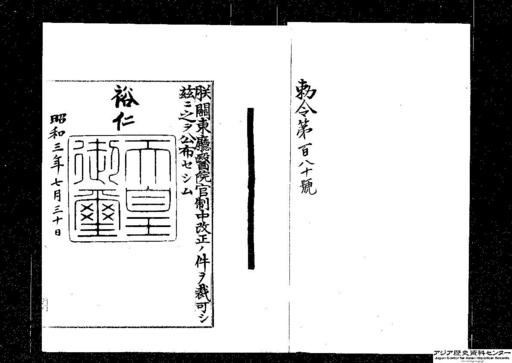 勅令第百八十號
朕關東廳醫院官制中改正ノ件ヲ裁可シ
茲ニ之ヲ公布セシム
裕仁
天皇
御璽
昭和三年七月三十日
アジア歴史資料センター
Japan Center for Asian Historical Records